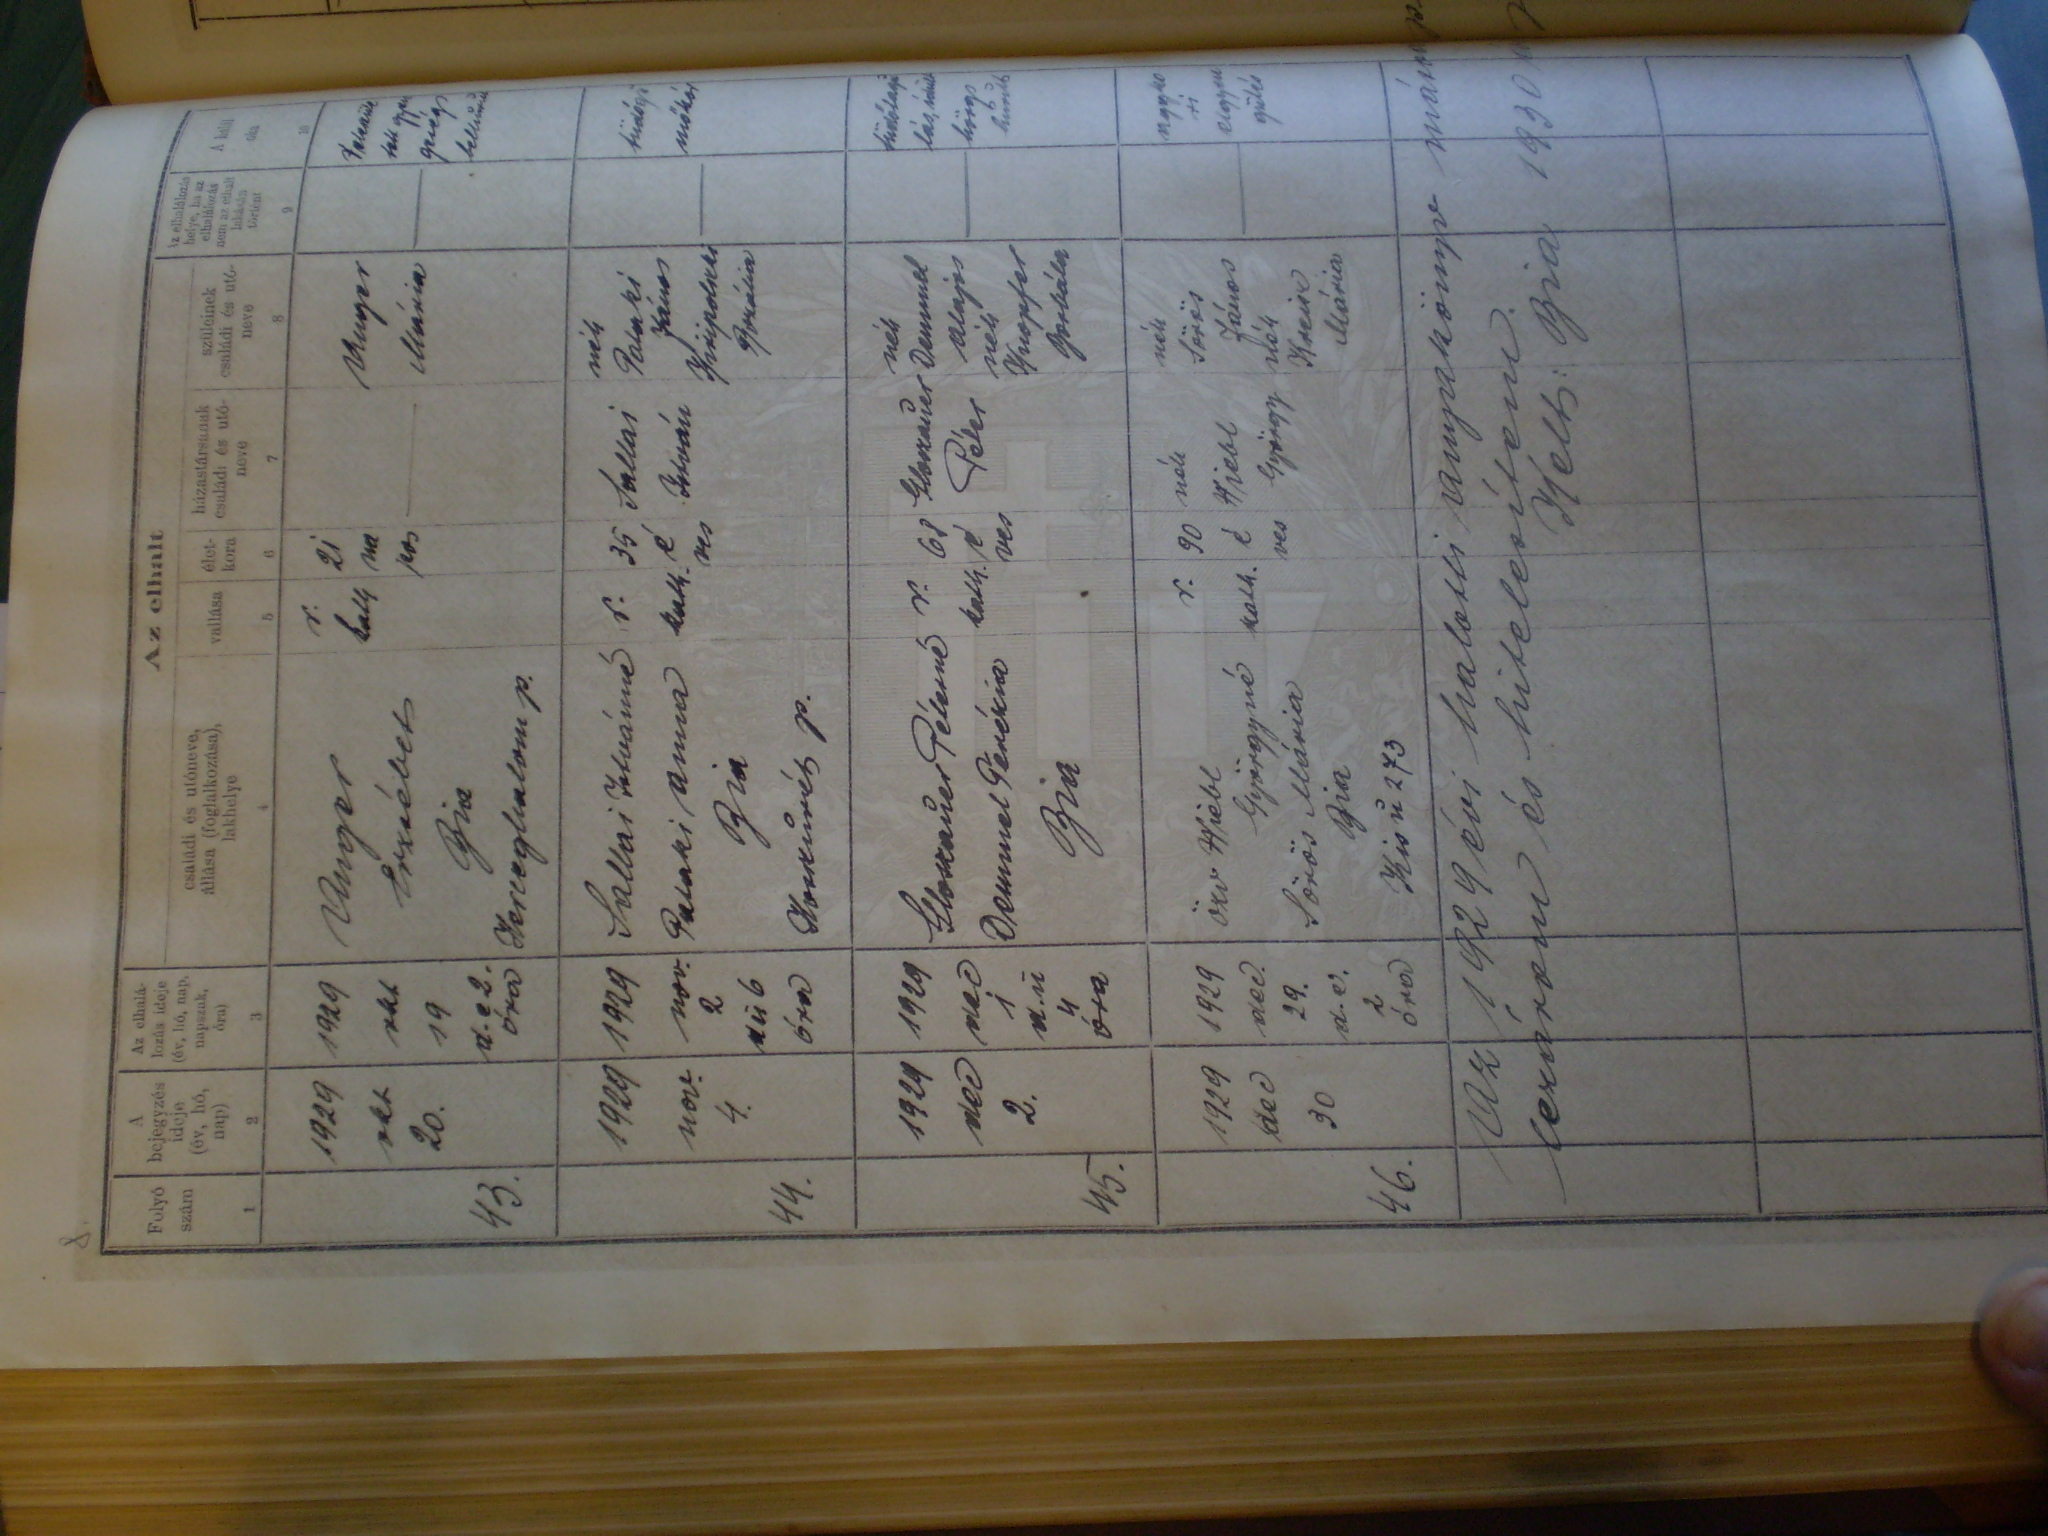 8.
Az elhalt
Folyó szám
A bejegyzés ideje (év, hó, nap)
Az elhalálozás ideje (év, hó, nap, napszak, óra)
családi és utóneve, állása (foglalkozása), lakhelye
vallása
életkora
házastársának családi és utóneve
szüleinek családi és utóneve
Az elhalálozás helye, ha az elhalálozás nem az elhalt lakásán történt
A halál oka
1 2 3 4 5 6 7 8 9 10
43.
1929 okt 20.
1929 okt 19 d.e 2. óra
Unger
Erzsébet
Bia
Herceghalom p.
r. kath
21 na pos
Unger
Mária
44.
1929 nov. 4.
1929 nov. 2 du 6 óra
Sallai Istvánné
Pataki Anna
Bia
p.
r. kath.
35 é ves
Sallai István
néh
Pataki
János
Rozália
45.
1929 dec 2.
1929 dec 1 d.u 4 óra
Péterné
Demmel Terézia
Bia
r. kath.
68 é ves
Péter
néh
Demmel
Alajos
néh
Knopfer
Borbála
46.
1929 dec 30
1929 dec. 29. d.e. 2 óra
özv Wiebl
Györgyné
Sörös Mária
Bia
Kis u 273
r. kath.
90 é ves
néh
Wiebl
György
néh
Sörös
János
néh
Mária
Az 1929 évi halotti anyakönyv
lezárom és hitelesítem.
Kelt: Bia 1930